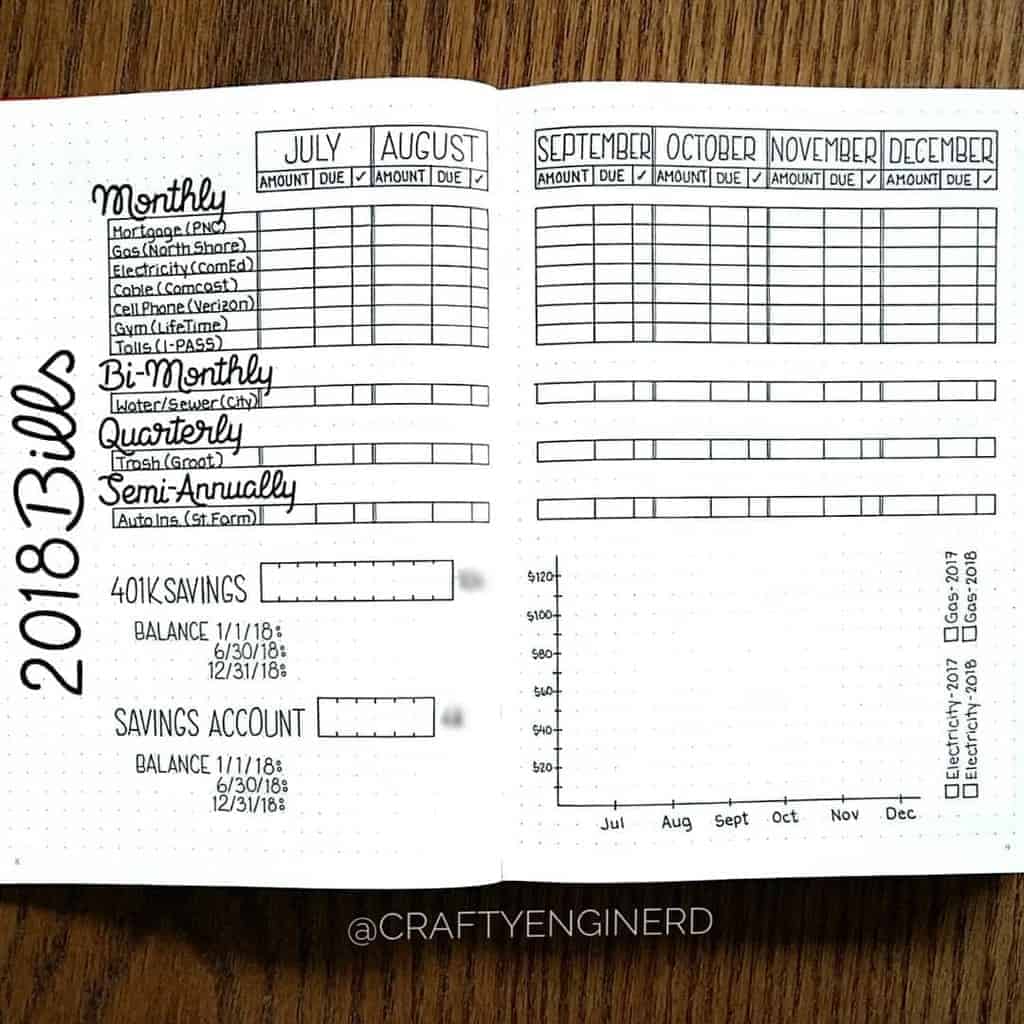 2018 Bills
JULY AUGUST SEPTEMBER OCTOBER NOVEMBER DECEMBER
AMOUNT DUE ✓ AMOUNT DUE ✓ AMOUNT DUE ✓ AMOUNT DUE ✓ AMOUNT DUE ✓ AMOUNT DUE ✓
Monthly
Mortgage (PNC)
Gas (North Shore)
Electricity (ComEd)
Cable (Comcast)
Cell Phone (Verizon)
Gym (LifeTime)
Tolls (I-PASS)
Bi-Monthly
Water/Sewer (City)
Quarterly
Trash (Groot)
Semi-Annually
Auto Ins. (St. Farm)
401K SAVINGS
BALANCE 1/1/18:
6/30/18:
12/31/18:
SAVINGS ACCOUNT
BALANCE 1/1/18:
6/30/18:
12/31/18:
$120
$100
$80
$60
$40
$20
Jul Aug Sept Oct Nov Dec
Gas-2017
Gas-2018
Electricity-2017
Electricity-2018
8
9
@CRAFTYENGINERD